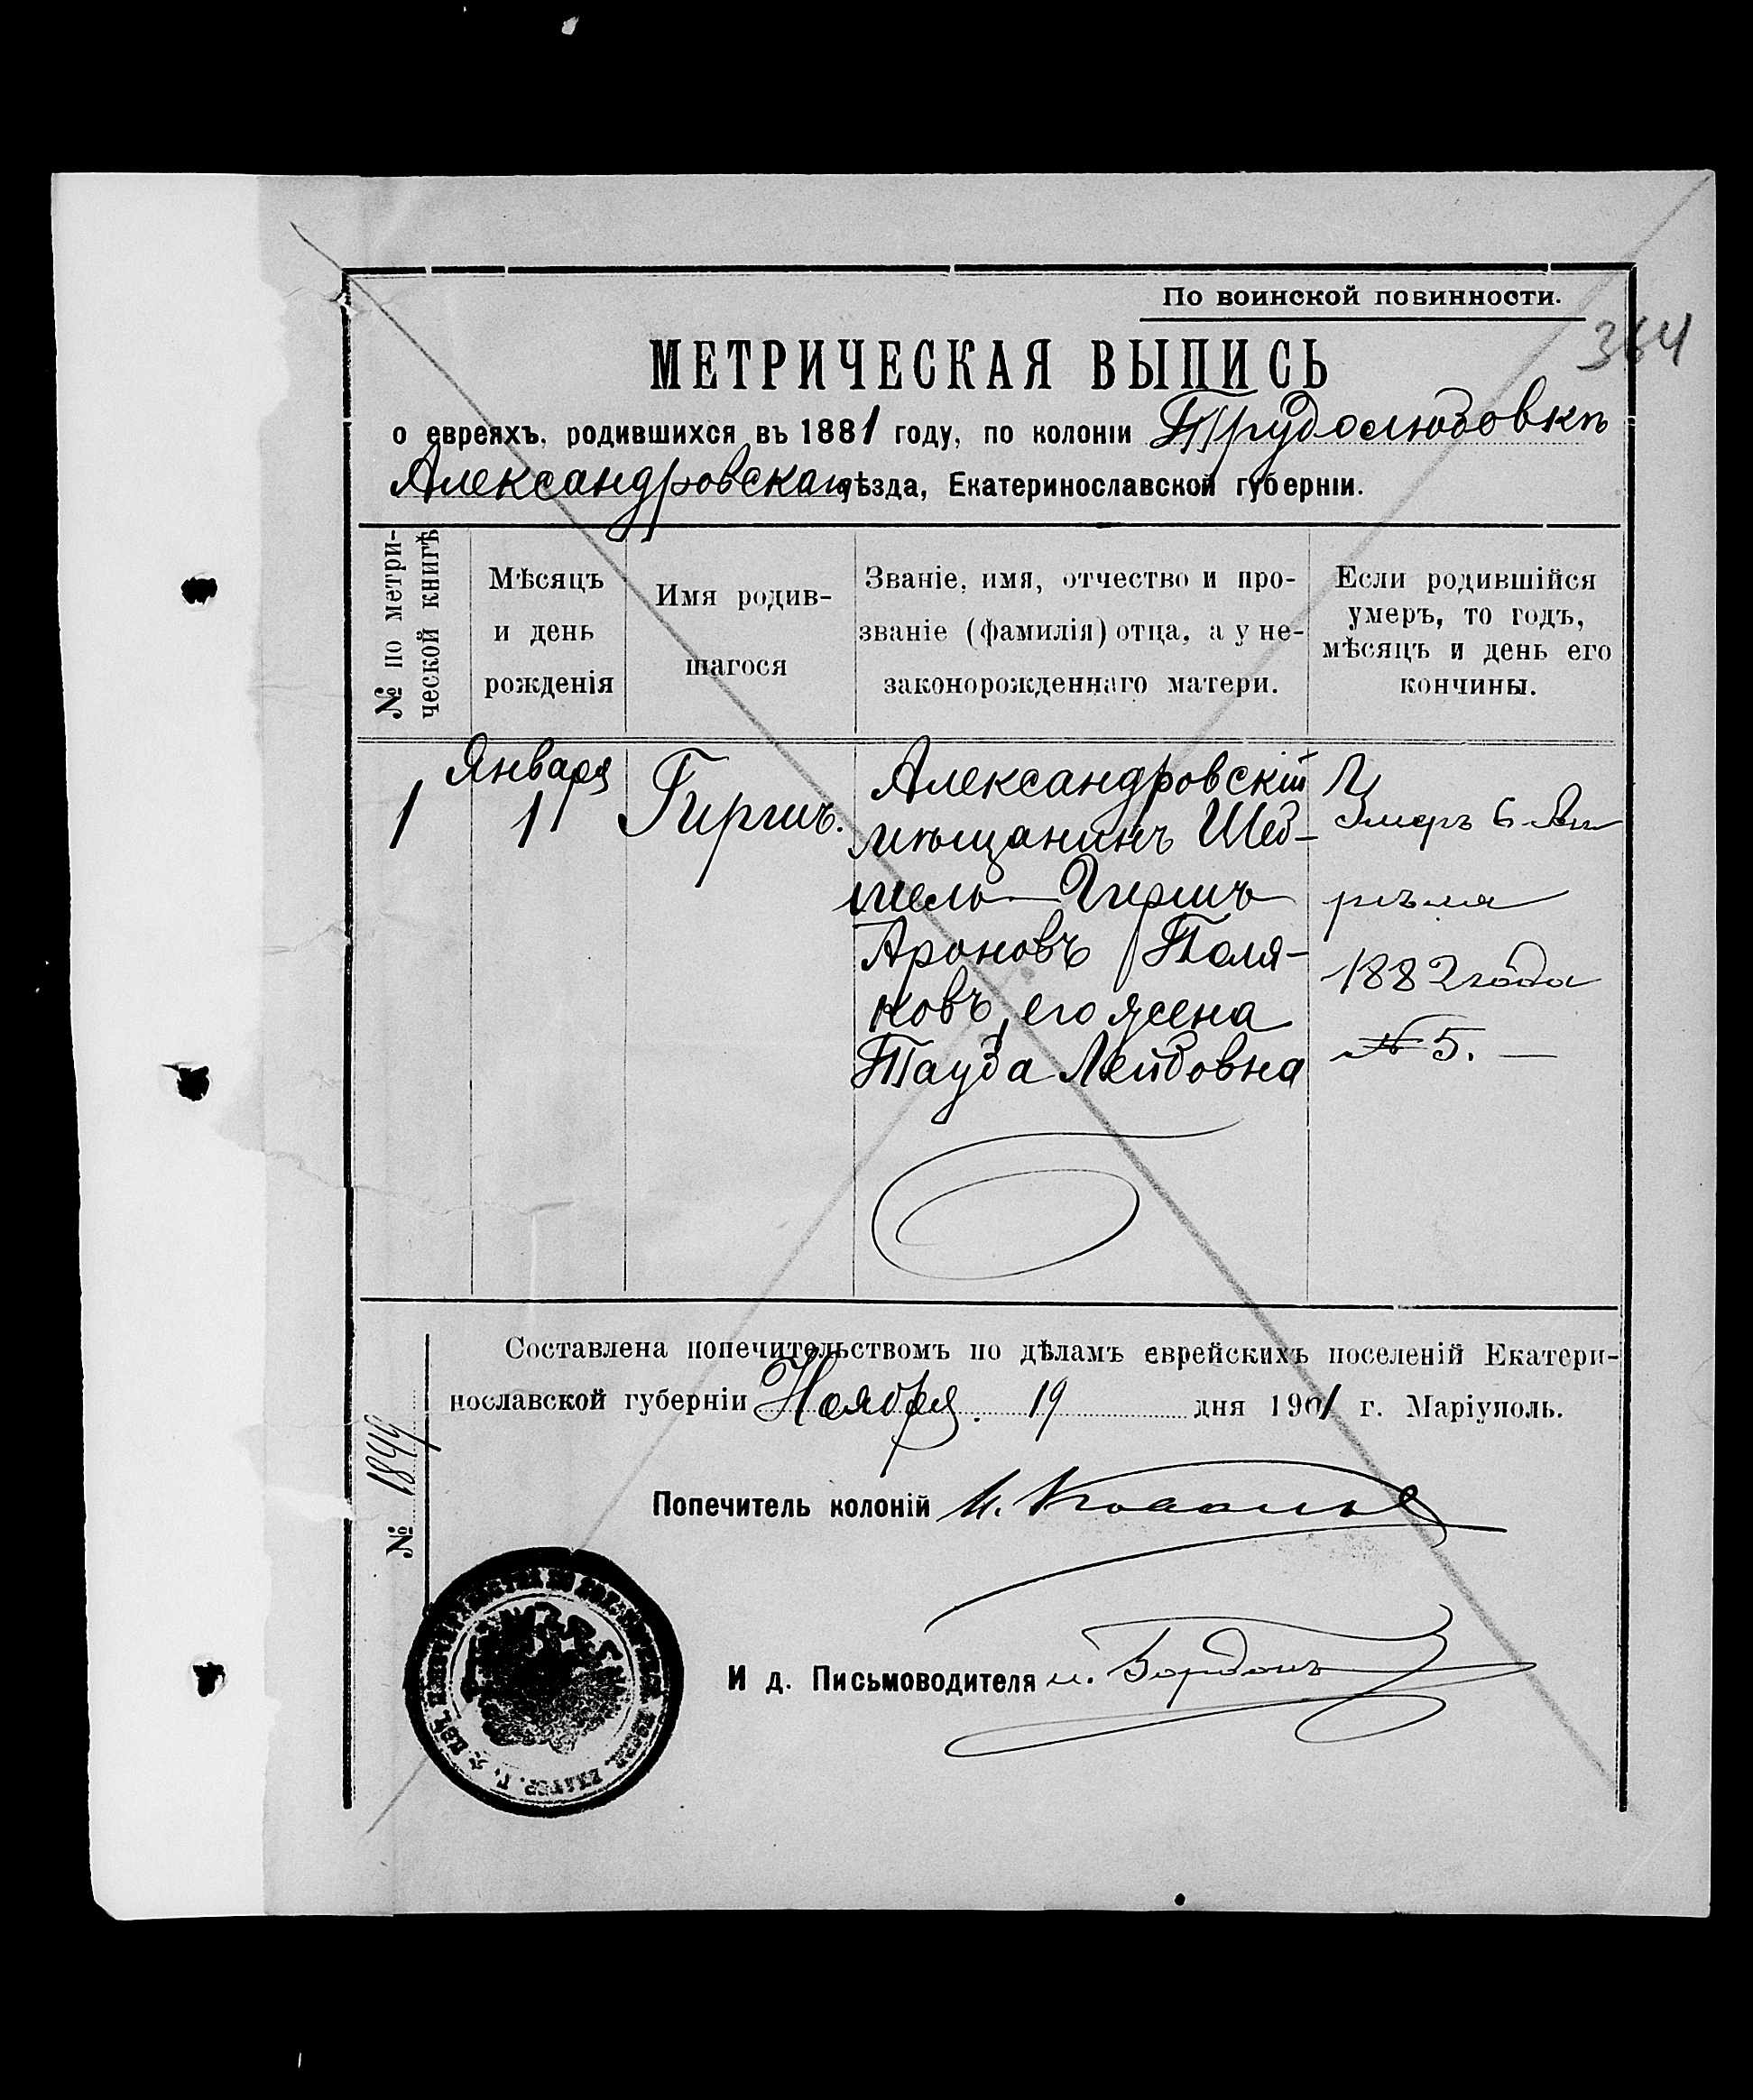 По воинской повинности.
364
МЕТРИЧЕСКАЯ ВЫПИСЬ
о евреяхъ, родившихся въ 1881 году, по колоніи Трудолюбовкѣ
Александровскаго уѣзда, Екатеринославской губерніи.
№ по метри-
ческой книгѣ
Мѣсяцъ
и день
рожденія
Имя родив-
шагося
Званіе, имя, отчество и про-
званіе (фамилія) отца, а у не-
законорожденнаго матери.
Если родившійся
умеръ, то годъ,
мѣсяцъ и день его
кончины.
1
Января
11
Гиршъ.
Александровскій
мѣщанинъ
Гиршъ
Ароновъ Поля-
ковъ, его жена
Тауба Лейбовна
Умеръ 6 Ап
рѣля
1882 года
№ 5. —
Составлена попечительствомъ по дѣламъ еврейскихъ поселеній Екатери-
нославской губерніи Ноября 19 дня 1901 г. Маріуполь.
№ 1844
Попечитель колоній И.
И д. Письмоводителя